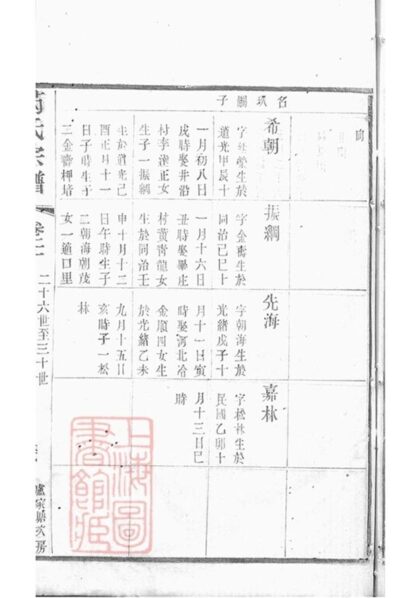 名玖關子
希朝
榮生於
道光甲辰十
一月初八日
戌時娶井沿
村李漢正女
生子一振綱
酉正月十一
日子時生子
三金齋樨培
振綱
字金齋生於
同治己巳十
一月十六日
丑時娶畢庄
村黃背龍女
生於同治壬
申十月十二
日午時生子
二朝海朝茂
女一適口里
先海
字朝海生於
光緒戊子十
月十一日寅
時娶河北冷
金順四女生
於光緒乙未
九月十五日
亥時子一松
林
嘉林
字松林生於
民國乙卯十
月十三日巳
時
氏宗譜
卷二
二十六世至三十世
玖房
上海圖書館藏